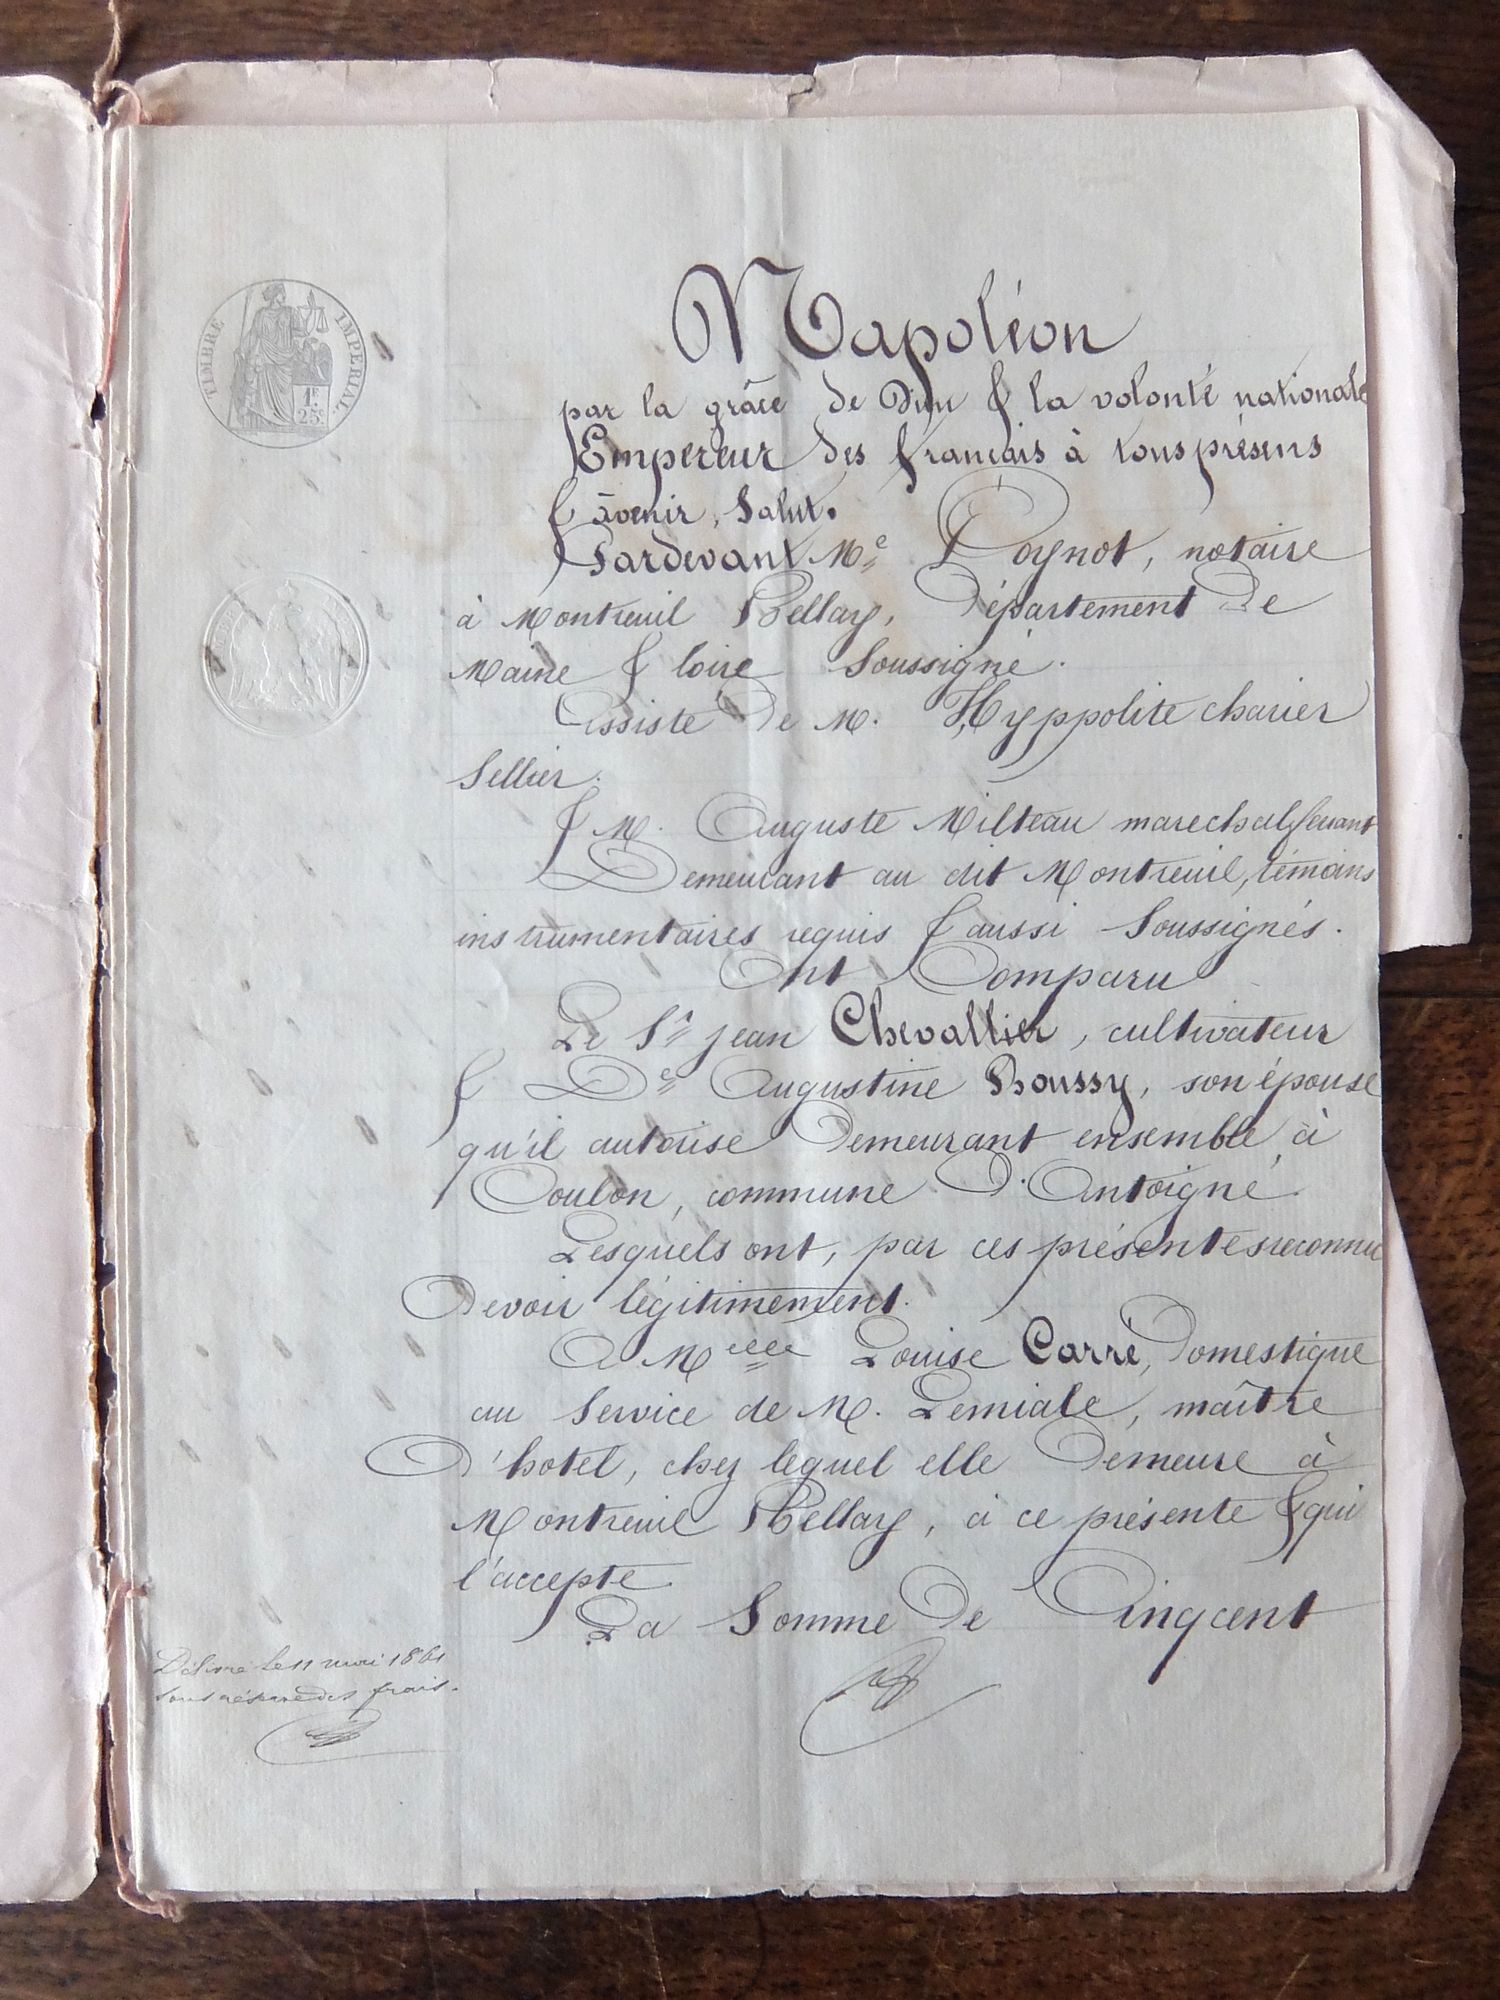 TIMBRE IMPERIAL.
1F
25c
Napoléon
par la grâce de Dieu & la volonté nationale
Empereur des français à tous présens
& àvenir, Salut.
Pardevant Me Poynot, notaire
à Montreuil Bellay, Département de
Maine & loire Soussigné.
Assisté de M. Hyppolite charier
Sellier.
& M. Auguste Milteau marechal ferrant
Demeurant au dit Montreuil, témoins
instrumentaires requis & aussi Soussignés.
Ont Comparu
Le Sr jean Chevallier, cultivateur
& De Augustine Boussy, son épouse
qu'il autorise Demeurant ensemble à
Coulon, commune D'Antoigné.
Lesquels ont, par ces présentes reconnu
Devoir légitimement.
A Melle Louise Carré, Domestique
au Service de M. Lemiale, maître
D'hotel, chez lequel elle Demeure à
Montreuil Bellay, à ce présente & qui
l'accepte.
La Somme De Cinq cent
Délivré le 11 mai 1861
sous réserve des frais.